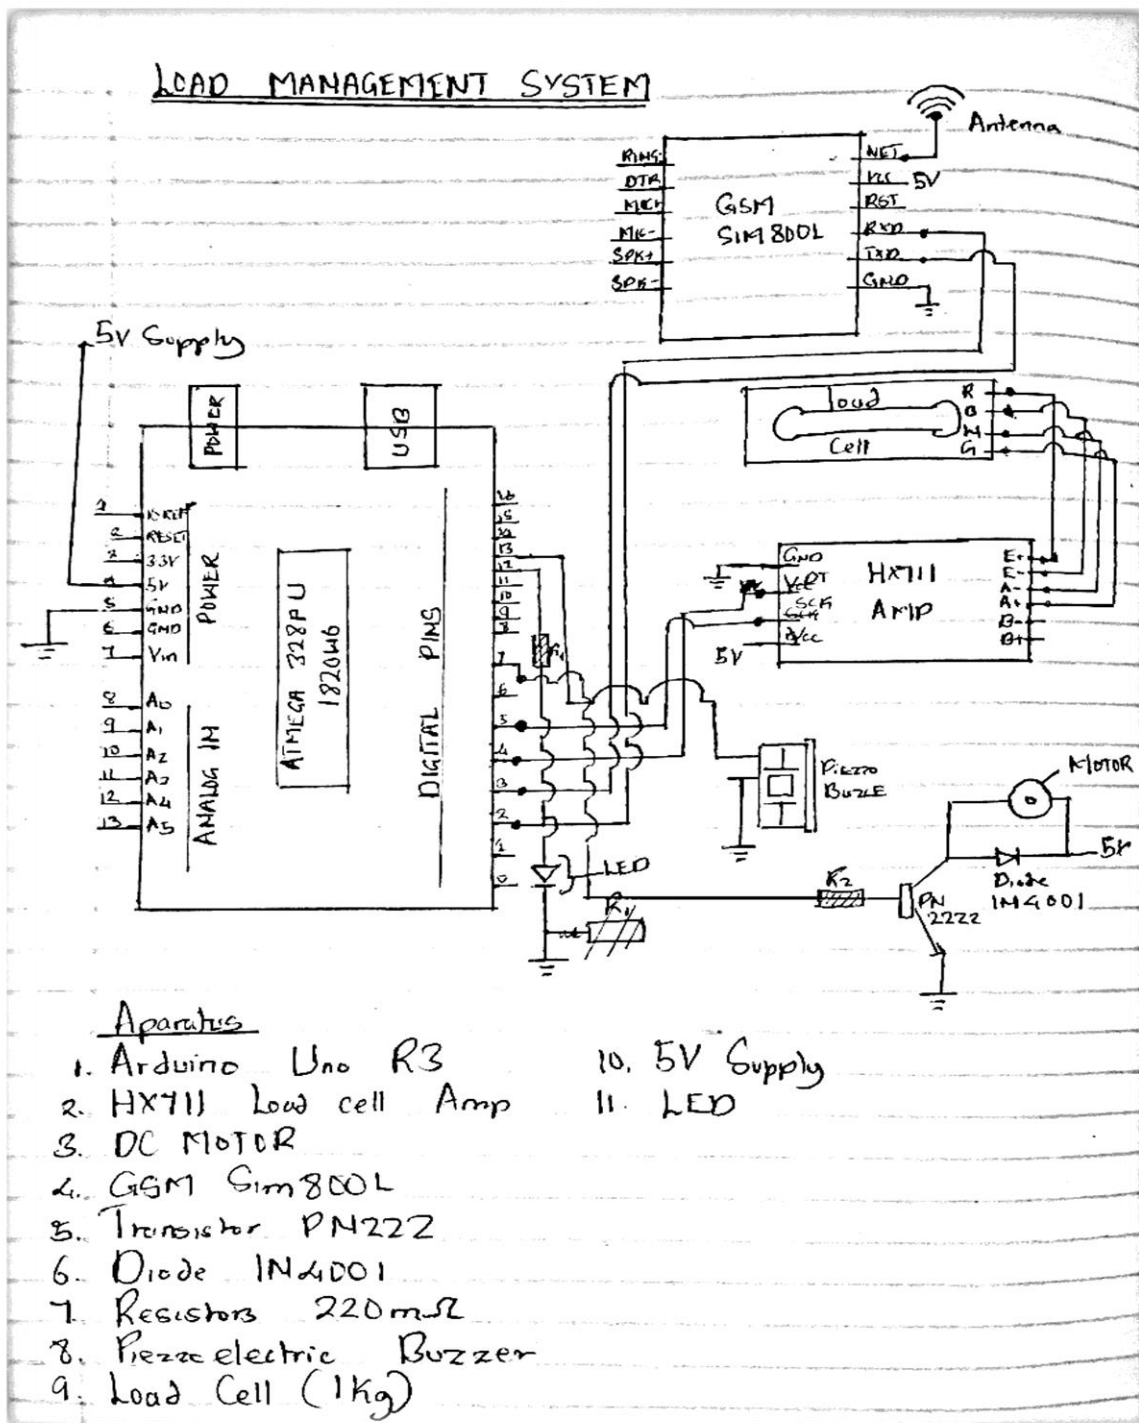 LOAD MANAGEMENT SYSTEM
Antenna
RING
DTR
MIC+
MIC-
SPK+
SPK-
GSM
SIM800L
NET
VCC 5V
RST
RXD
TXD
GND
5V Supply
POWER
USB
Load
Cell
R
B
W
G
1 IOREF
2 RESET
3 3.3V
4 5V
5 GND
6 GND
7 Vin
POWER
8 A0
9 A1
10 A2
11 A3
12 A4
13 A5
ANALOG IN
ATMEGA 328P U
1820W6
DIGITAL PINS
16
15
13
12
11
10
9
8
7
6
5
4
3
2
1
0
R1
GND
SCK
VCC
5V
HX711
AMP
E+
E-
A-
A+
B-
B+
Piezzo
BUZZLE
MOTOR
5V
Diode
1N4001
LED
R1
R2
PN
2222
Aparatus
1. Arduino Uno R3
2. HX711 Load cell Amp
3. DC MOTOR
4. GSM Sim800L
5. Transistor PN222
6. Diode 1N4001
7. Resistors 220mΩ
8. Piezzoelectric Buzzer
9. Load Cell (1Kg)
10. 5V Supply
11. LED